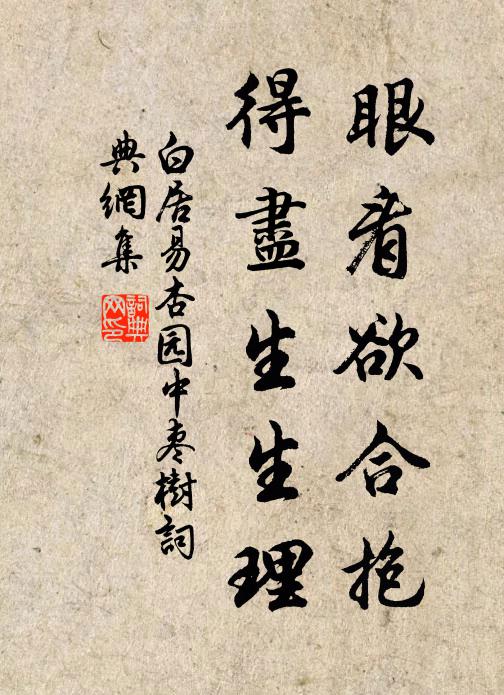 眼看欲合抱
得盡生生理
白居易杏园中枣樹詞
典網集
詞典
网印